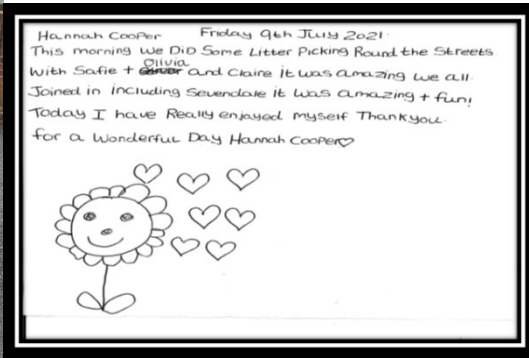 Hannah Cooper Friday 9th July 2021.
This morning we DiD Some Litter Picking Round the Streets
Olivia
With Safie + and Claire it was amazing we all.
Joined in including Sevendale it was amazing + fun!
Today I have Really enjoyed myself Thankyou.
for a Wonderful Day Hannah Cooper♡